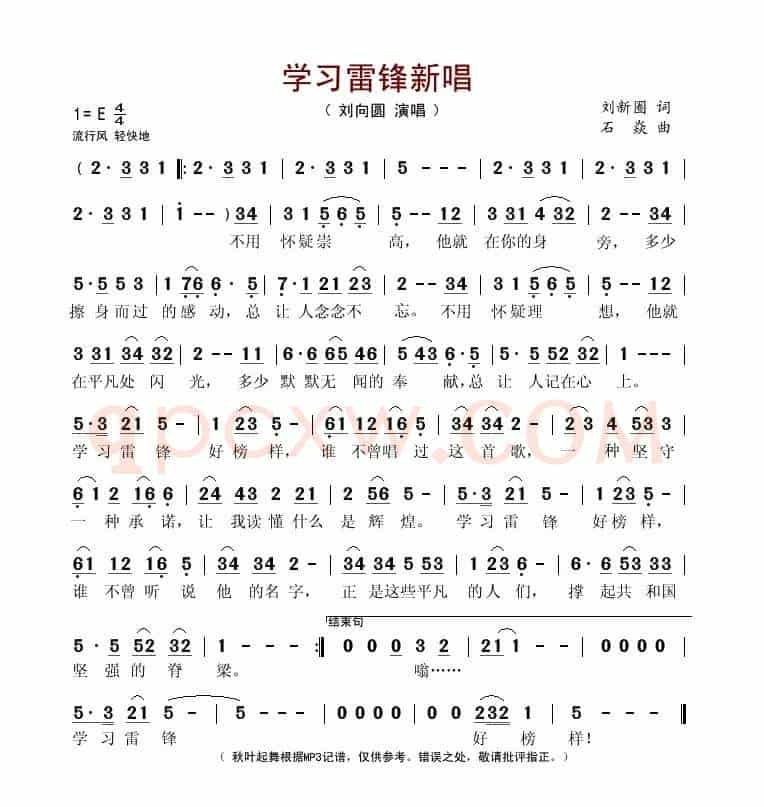 学习雷锋新唱
（ 刘向圆 演唱 ）
1= E 4/4
刘新圈 词
流行风 轻快地
石 焱 曲
( 2· 3 3 1 ‖: 2· 3 3 1 | 2· 3 3 1 | 5 - - - | 2· 3 3 1 | 2· 3 3 1 |
2· 3 3 1 | i - - ) 34 | 3 1 5 6 5 | 5 - - 12 | 3 31 4 32 | 2 - - 34 |
不用 怀疑崇 高， 他就 在你的身 旁， 多少
5· 5 5 3 | 1 76 6· 5 | 7· 1 21 | 2 - - 34 | 3 1 5 6 5 | 5 - - 12 |
擦 身 而过 的感 动，总 让 人念念不 忘。 不用 怀疑理 想， 他就
3 31 34 32 | 2 - - 11 | 6· 6 65 46 | 5 43 6· 5 | 5· 5 52 32 | 1 - - - |
在平凡处 闪 光， 多少 默默无 闻的奉 献，总 让 人记在心 上。
5·3 21 5 - | 1 23 5 - | 61 12 16 5 | 34 34 5 1 | 2 - 3 4 53 3 |
学习 雷 锋 好榜 样， 谁 不曾唱 过 这 首 歌， 一 种 坚守
6 1 2 16 6 | 24 43 21 1 | 2 56 5 - | 5·3 21 5 - | 1 23 5 - |
一 种 承 诺，让 我读懂 什么 是 辉 煌。 学习 雷 锋 好榜 样，
61 12 16 5 | 34 34 2 1 | 34 34 5 53 | 1 23 6 - | 6 5 53 33 |
谁 不曾听 说 他 的 名 字， 正 是这些平凡 的人 们， 撑 起共 和国
结束句
5· 5 52 32 | 1 - - - :‖ 0 0 0 3 2 | 21 1 - - | 0 0 0 0 | 0 0 0 0 |
坚 强 的 脊 梁。 嗡……
5· 3 21 5 - | 5 - - - | 0 0 0 0 | 0 0 232 1 | 5 - - - ‖
学 习 雷 锋 好 榜 样！
（ 秋叶起舞根据MP3记谱，仅供参考。错误之处，敬请批评指正。）
qpcxw.COM